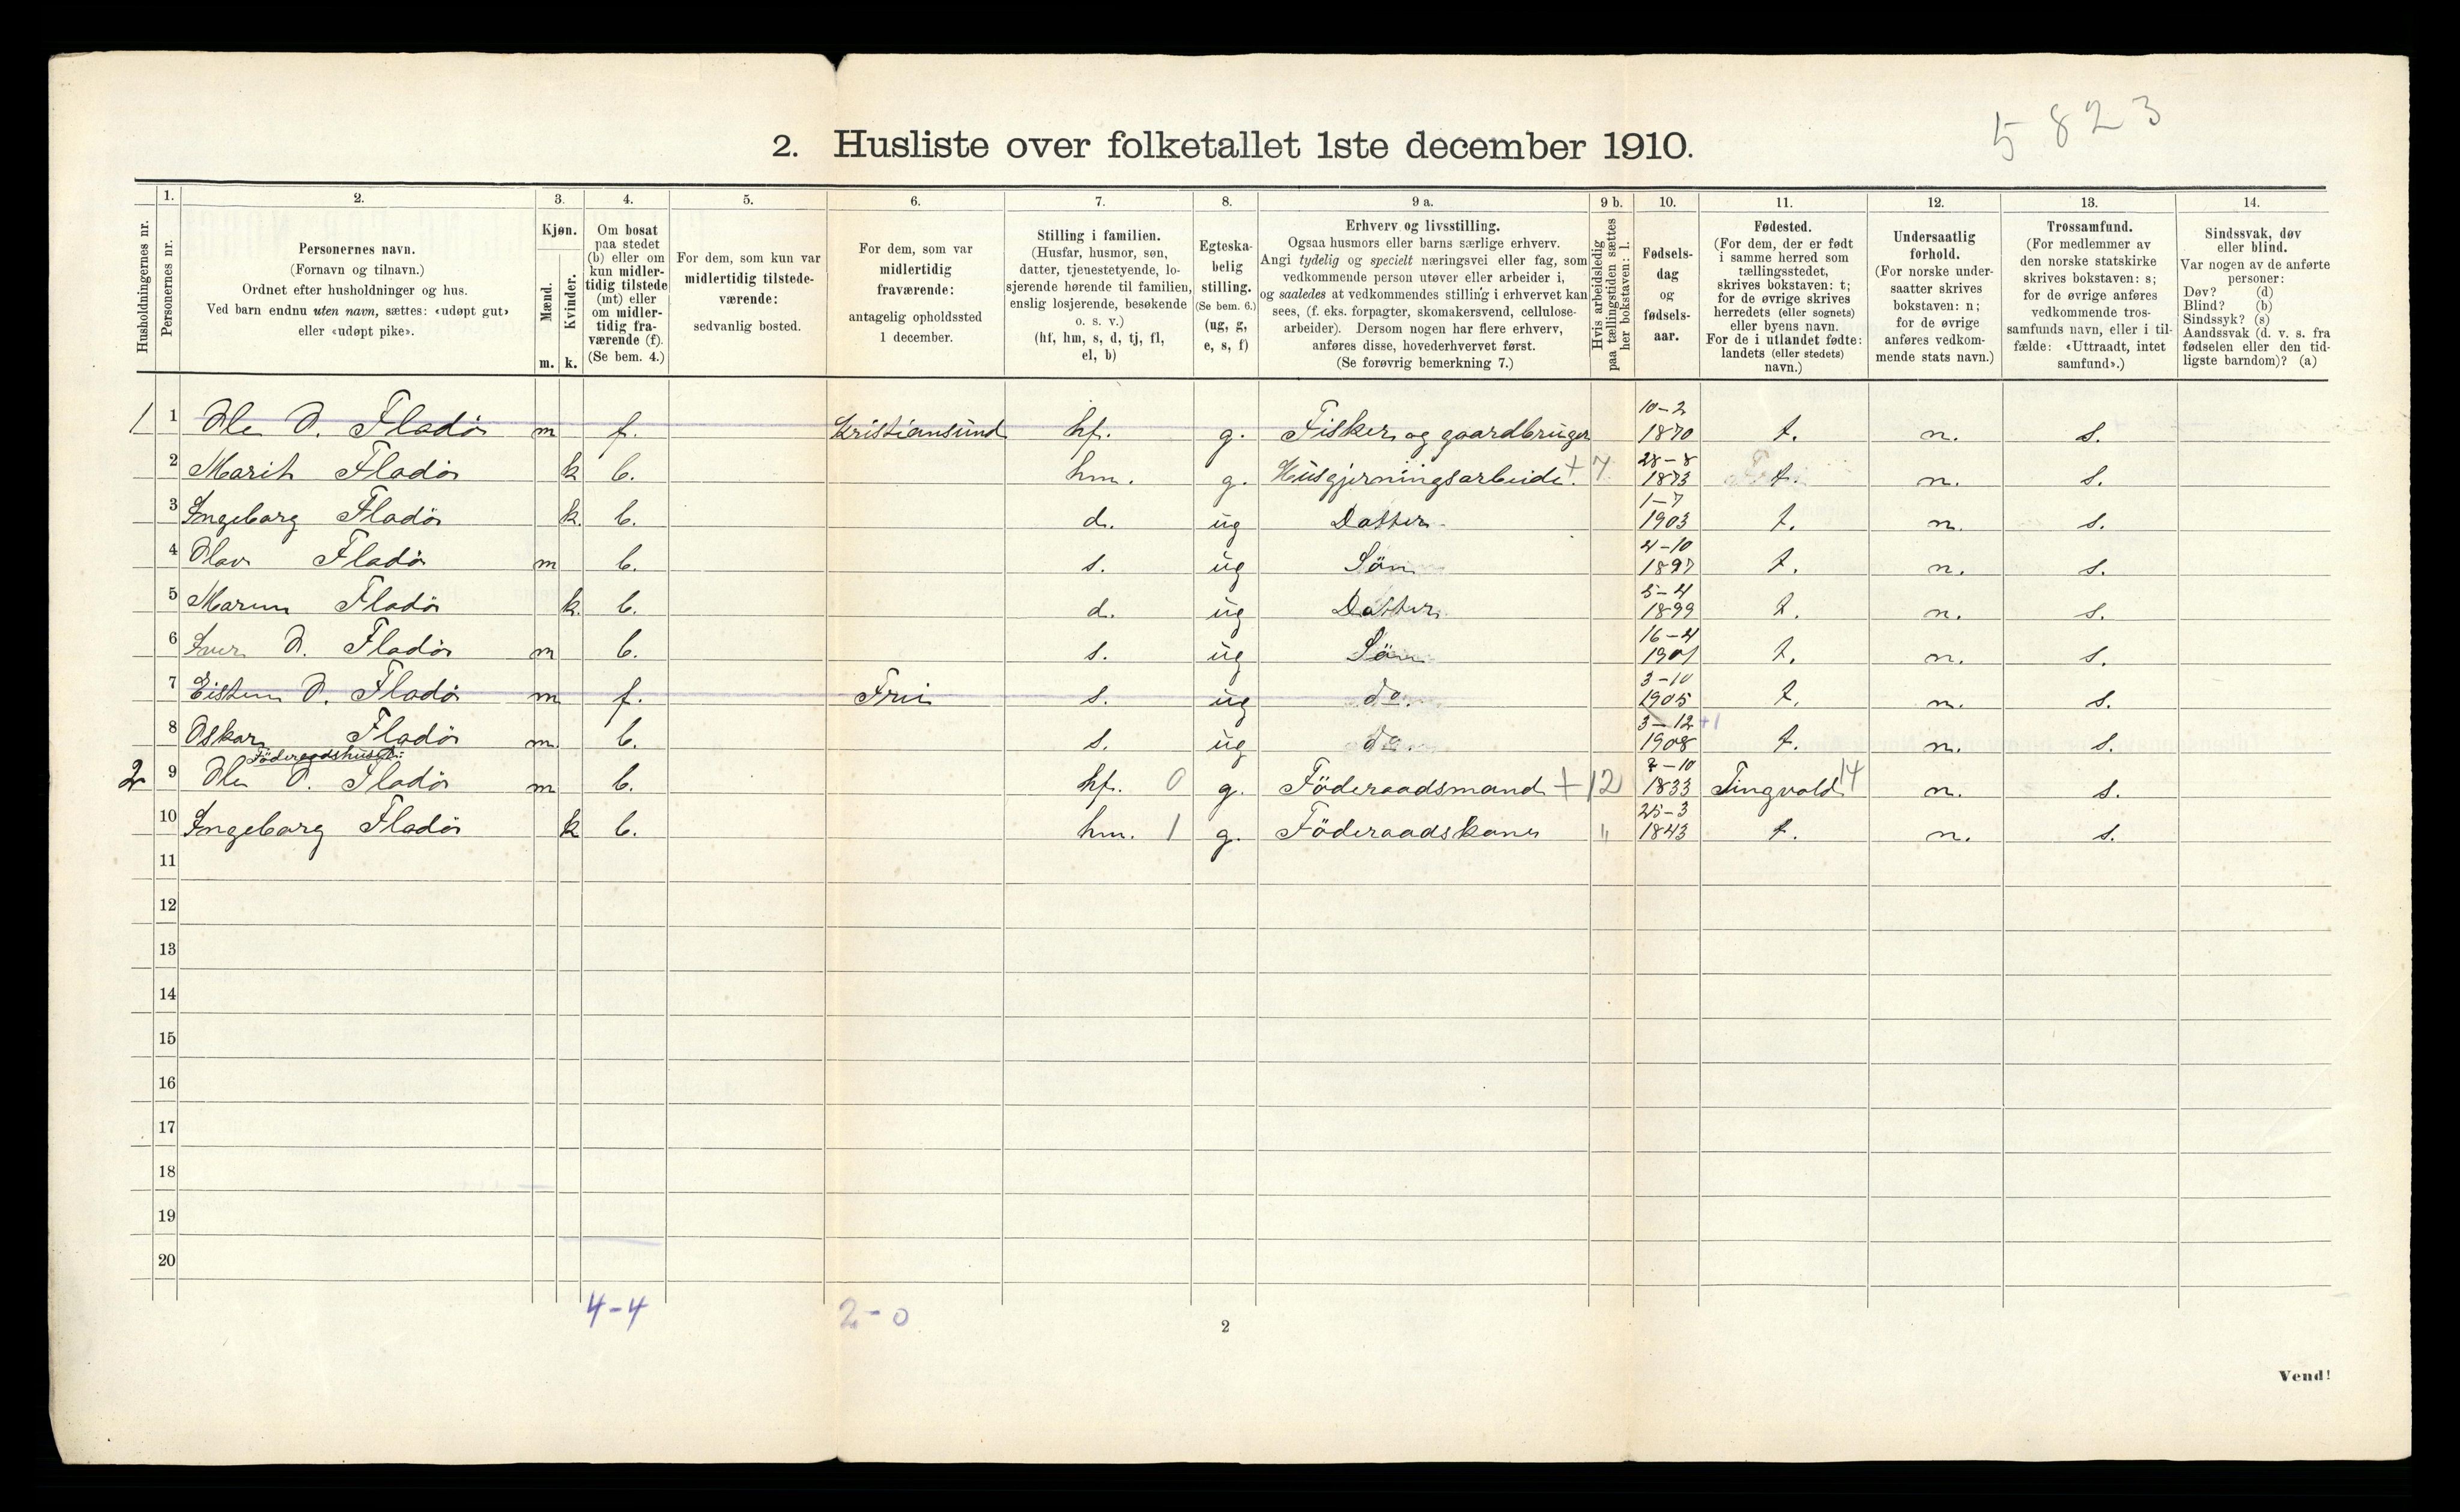 5823
2. Husliste over folketallet 1ste december 1910.
Husholdningernes nr.
1.
Personernes nr.
2.
Personernes navn.
(Fornavn og tilnavn.)
Ordnet efter husholdninger og hus.
Ved barn endnu uten navn, sættes: «udøpt gut»
eller «udøpt pike».
3.
Kjøn.
Mænd.
m.
Kvinder.
k.
4.
Om bosat
paa stedet
(b) eller om
kun midler-
tidig tilstede
(mt) eller
om midler-
tidig fra-
værende (f).
(Se bem. 4.)
5.
For dem, som kun var
midlertidig tilstede-
værende:
sedvanlig bosted.
6.
For dem, som var
midlertidig
fraværende:
antagelig opholdssted
1 december.
7.
Stilling i familien.
(Husfar, husmor, søn,
datter, tjenestetyende, lo-
sjerende hørende til familien,
enslig losjerende, besøkende
o. s. v.)
(hf, hm, s, d, tj, fl,
el, b)
8.
Egteska-
belig
stilling.
(Se bem. 6.)
(ug, g,
e, s, f)
9 a.
Erhverv og livsstilling.
Ogsaa husmors eller barns særlige erhverv.
Angi tydelig og specielt næringsvei eller fag, som
vedkommende person utøver eller arbeider i,
og saaledes at vedkommendes stilling i erhvervet kan
sees, (f. eks. forpagter, skomakersvend, cellulose-
arbeider). Dersom nogen har flere erhverv,
anføres disse, hovederhvervet først.
(Se forøvrig bemerkning 7.)
9 b.
Hvis arbeidsledig
paa tællingstiden sættes
her bokstaven: l.
10.
Fødsels-
dag
og
fødsels-
aar.
11.
Fødested.
(For dem, der er født
i samme herred som
tællingsstedet,
skrives bokstaven: t;
for de øvrige skrives
herredets (eller sognets)
eller byens navn.
For de i utlandet fødte:
landets (eller stedets)
navn.)
12.
Undersaatlig
forhold.
(For norske under-
saatter skrives
bokstaven: n;
for de øvrige
anføres vedkom-
mende stats navn.)
13.
Trossamfund.
(For medlemmer av
den norske statskirke
skrives bokstaven: s;
for de øvrige anføres
vedkommende tros-
samfunds navn, eller i til-
fælde: «Uttraadt, intet
samfund».)
14.
Sindssvak, døv
eller blind.
Var nogen av de anførte
personer:
Døv? (d)
Blind? (b)
Sindssyk? (s)
Aandssvak (d. v. s. fra
fødselen eller den tid-
ligste barndom)? (a)
1 1 Ole O. Fladö m f. Kristiansund hf. g. Fisker og gaardbruger 10-2 1870 t. n. s.
2 Marit Fladö k b. hm. g. Husgjerningsarbeide. + 7 28-8 1873 t. n. s.
3 Ingeborg Fladö k. b. d. ug Datter 1-7 1903 t. n. s.
4 Olav Fladö m b. s. ug Sön 4-10 1897 t. n. s.
5 Maren Fladö k. b. d. ug Datter 5-4 1899 t. n. s.
6 Iver O. Fladö m b. s. ug Sön 16-4 1901 t. n. s.
7 Eisten O. Fladö m f. Frei s. ug do. 3-10 1905 t. n. s.
8 Oskar Fladö m. b. s. ug do. 3-12 +1 1908 t. n. s.
Föderaadshuset:
2 9 Ole O. Fladö m b. hf. 0 g. Föderaadsmand + 12 2-10 1833 Tingvold 14 n. s.
10 Ingeborg Fladö k b. hm. 1 g. Föderaadskone " 25-3 1843 t. n. s.
11
12
13
14
15
16
17
18
19
20
4-4 2-0
2
Vend!